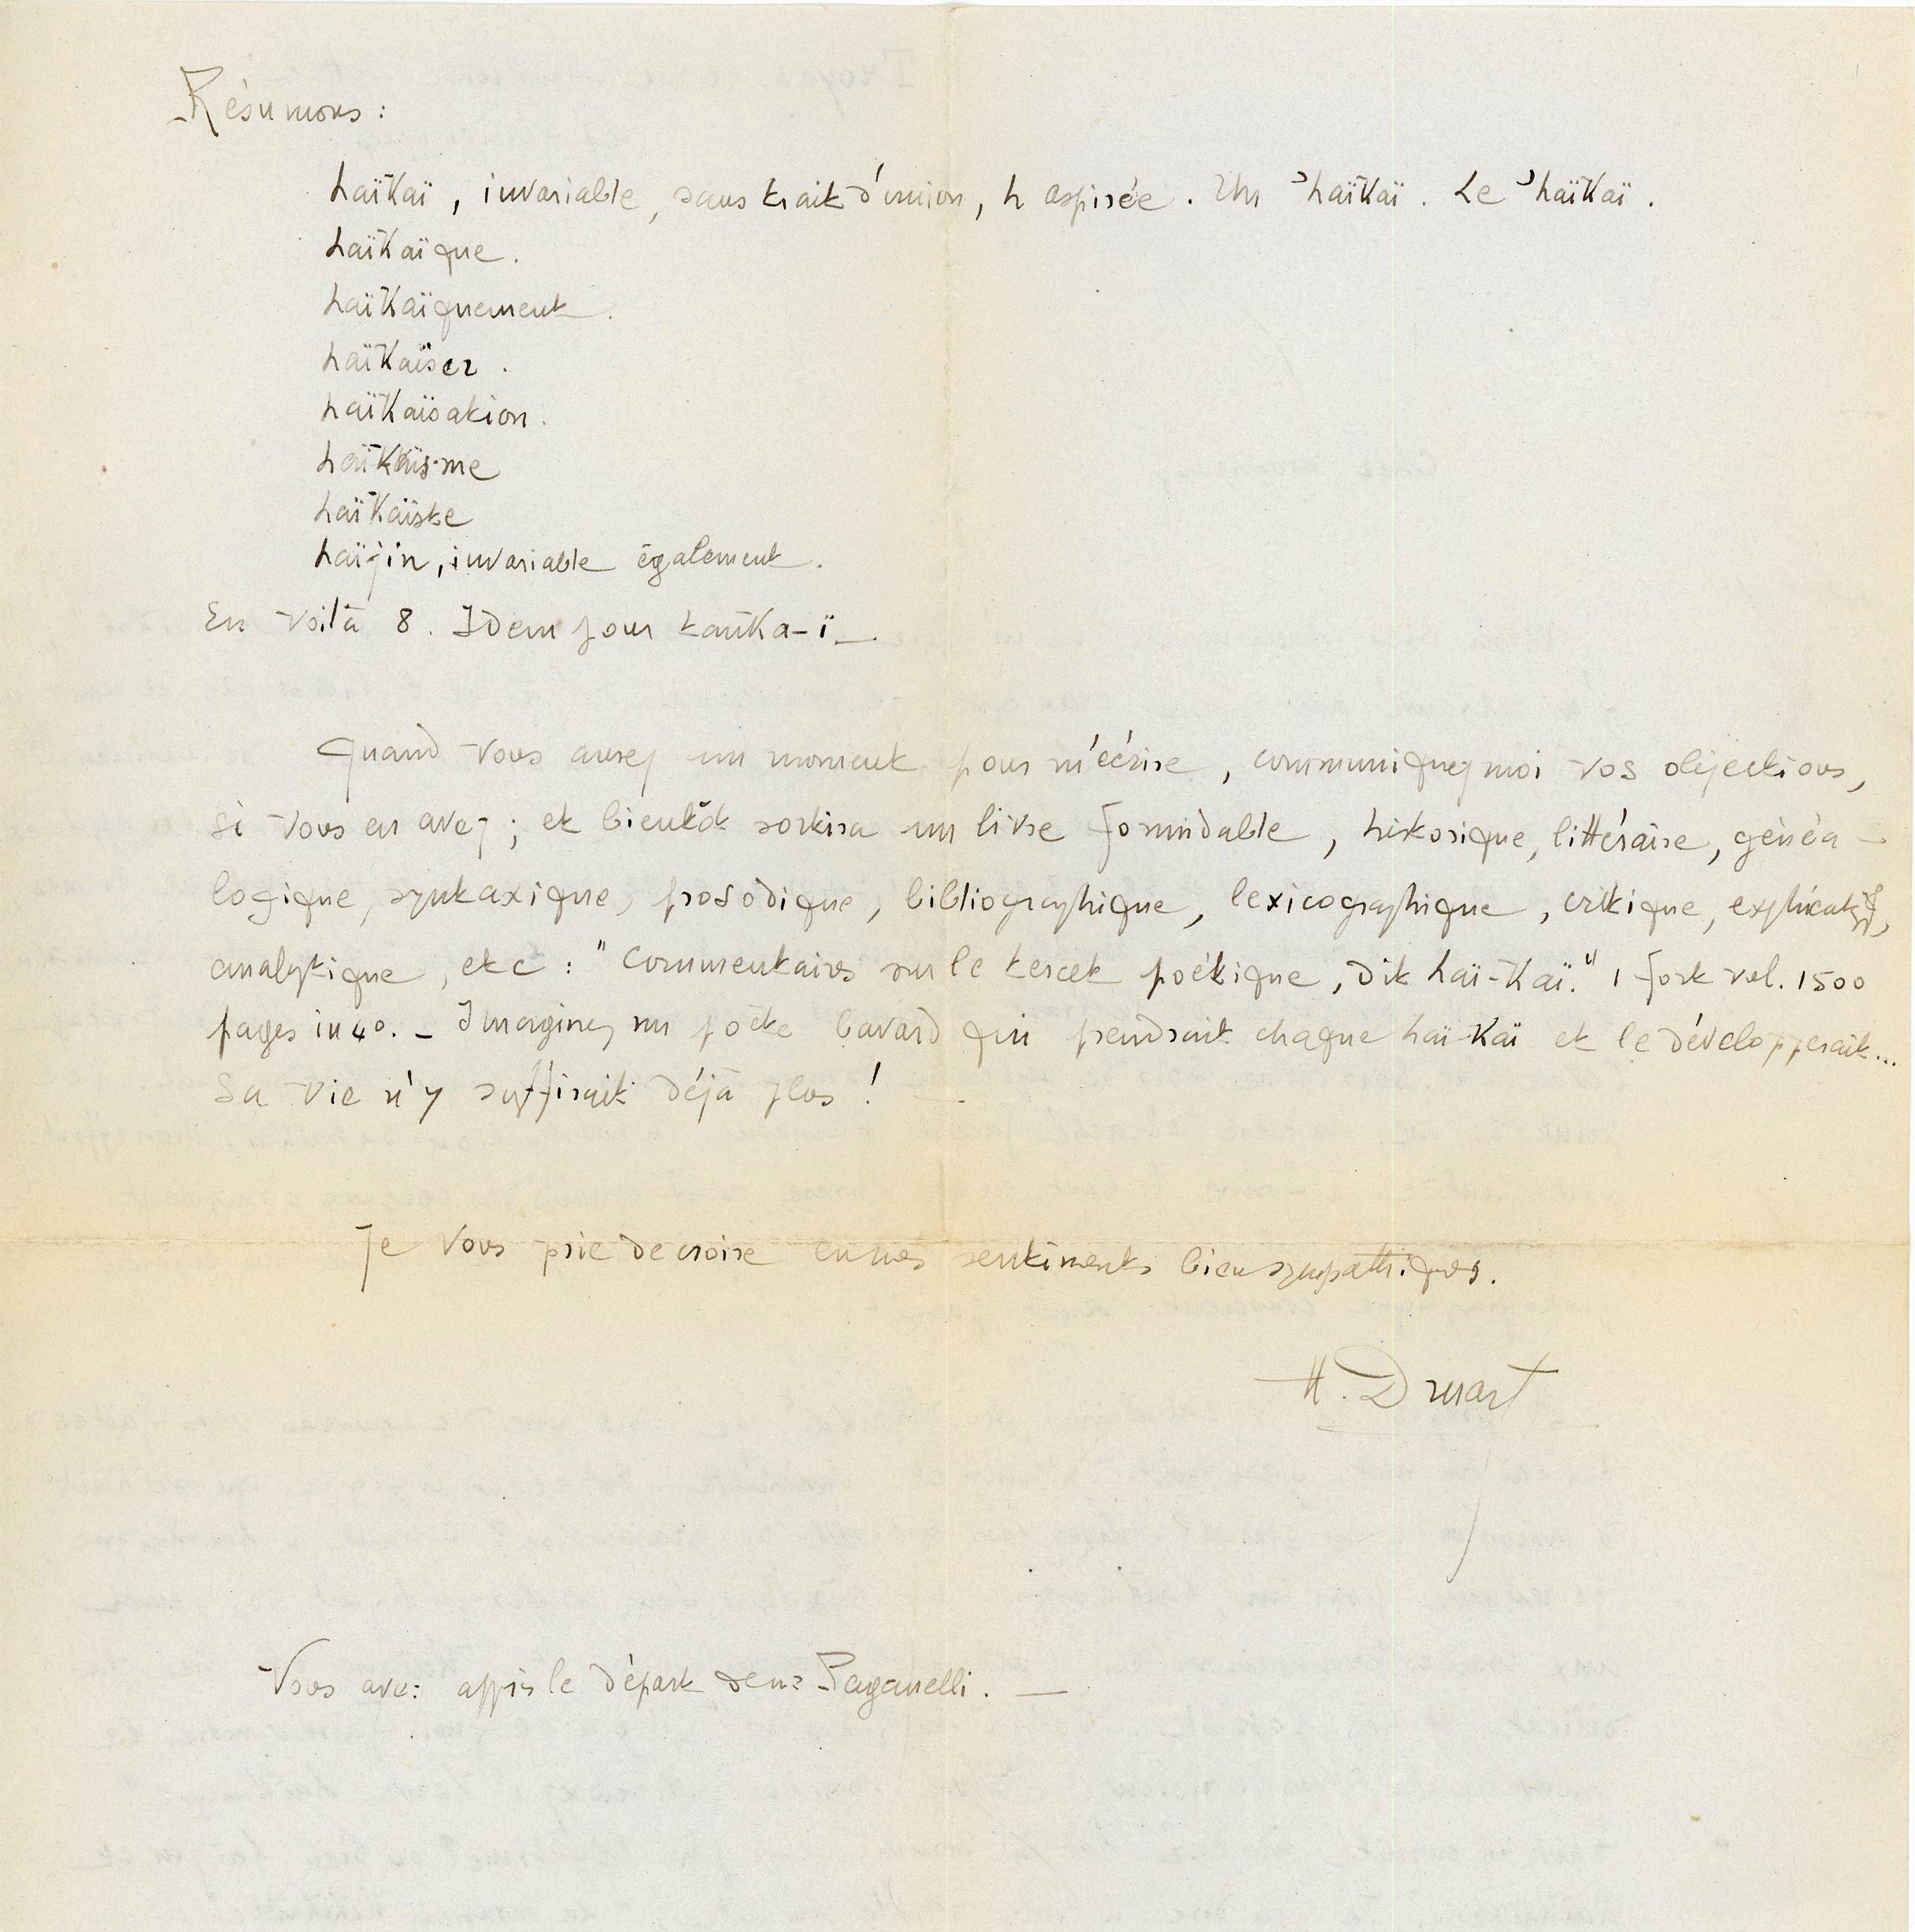 Résumons :
haïkaï, invariable, sans trait d'union, h aspirée. Un ʾhaïkaï. Le ʾhaïkaï.
haïkaïque.
haïkaïquement.
haïkaïser.
haïkaïsation.
haïkaïsme
haïkaïste
haïjin, invariable également.
En voilà 8. Idem pour tanka-ï —
Quand vous aurez un moment pour m'écrire, communiquez moi vos objections,
si vous en avez ; et bientôt sortira un livre formidable, historique, littéraire, généa-
logique, syntaxique, prosodique, bibliographique, lexicographique, critique, explicatif,
analytique, etc : "Commentaires sur le tercet poétique, dit haï-kaï." 1 fort vol. 1500
pages in 4o. – Imaginez un poète bavard qui prendrait chaque haï-kaï et le développerait...
Sa vie n'y suffirait déjà plus ! —
Je vous prie de croire en mes sentiments bien sympathiques.
H. Druart
Vous avez appris le départ de Paganelli. —